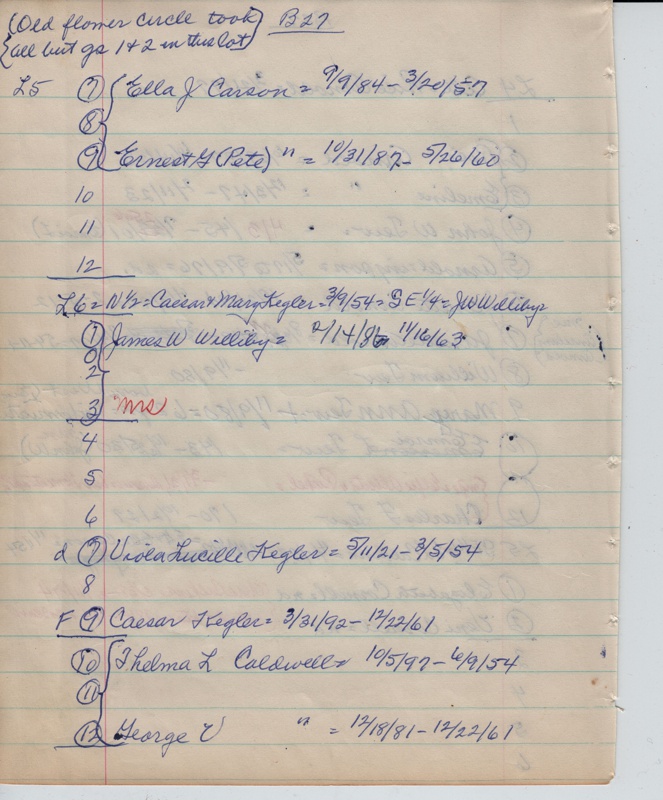 (Old flower circle took) B27
{all but gs 1 & 2 in this lot)
L5 (7) { Ella J Carson = 9/9/84 - 3/20/57
(8)
(9) Ernest G (Pete) " = 10/31/87 - 5/26/60
10
11
12
L6 = N 1/2 = Caesar & Mary Kegler = 3/9/54 = SE 1/4 = JW Williby
(1) James W Williby = 2/14/86 - 11/16/63
2
3 Mrs
4
5
6
d (7) Viola Lucille Kegler = 5/11/21 - 3/5/54
8
F (9) Caesar Kegler = 3/31/92 - 12/22/61
(10) { Thelma L Caldwell = 10/5/97 - 6/9/54
(11)
(12) George V " = 12/18/81 - 12/22/61